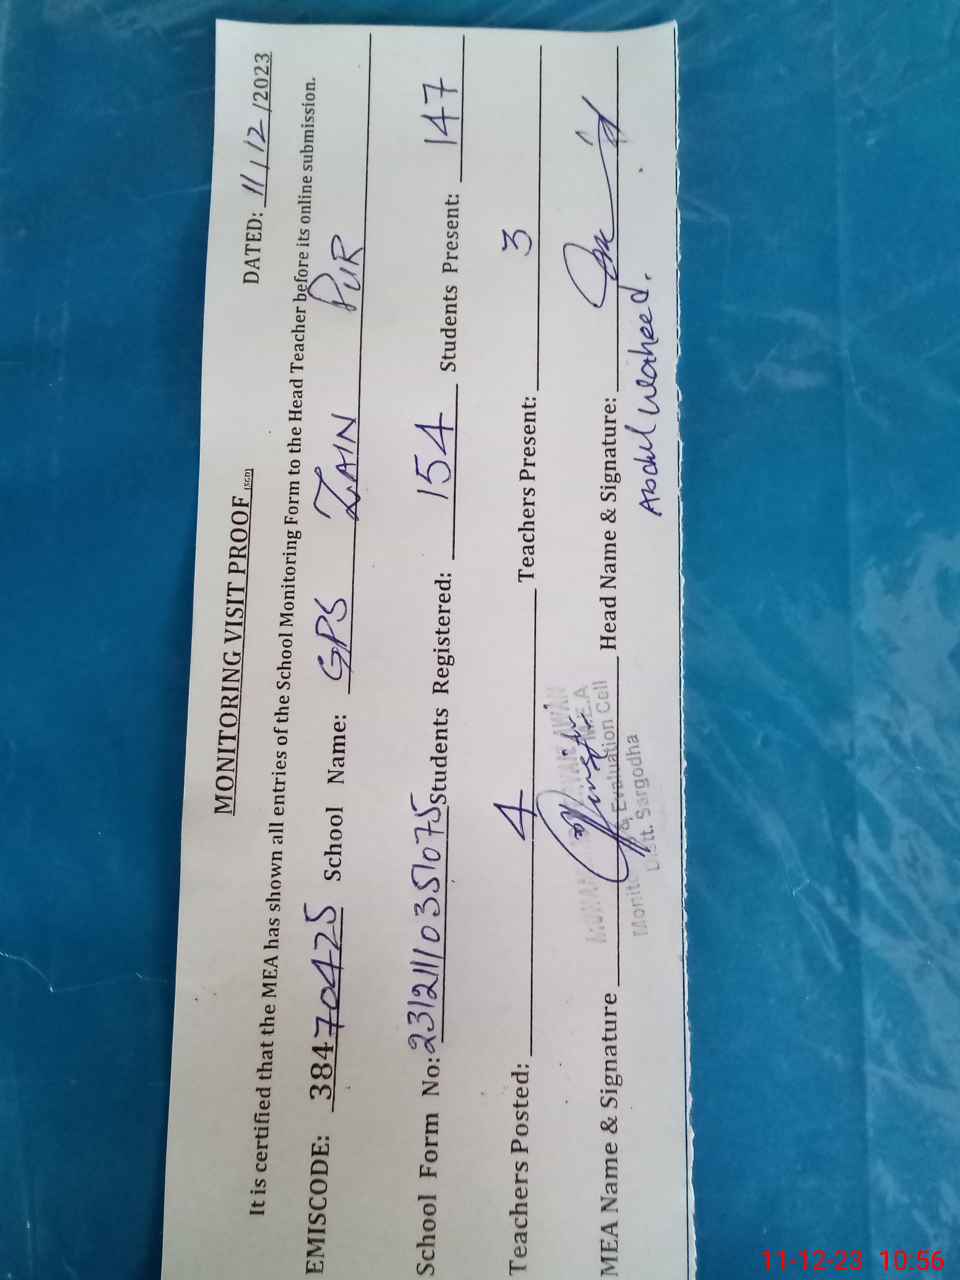 MONITORING VISIT PROOF (SGD)
DATED: 11/12/2023
It is certified that the MEA has shown all entries of the School Monitoring Form to the Head Teacher before its online submission.
EMISCODE: 38470425 School Name: GPS ZAIN PUR
School Form No: 231211103551075 Students Registered: 154 Students Present: 147
Teachers Posted: 4 Teachers Present: 3
MEA Name & Signature Head Name & Signature:
Abdul Waheed.
AWAN
M.E.A
& Evaluation Cell
Distt. Sargodha
11-12-23 10:56